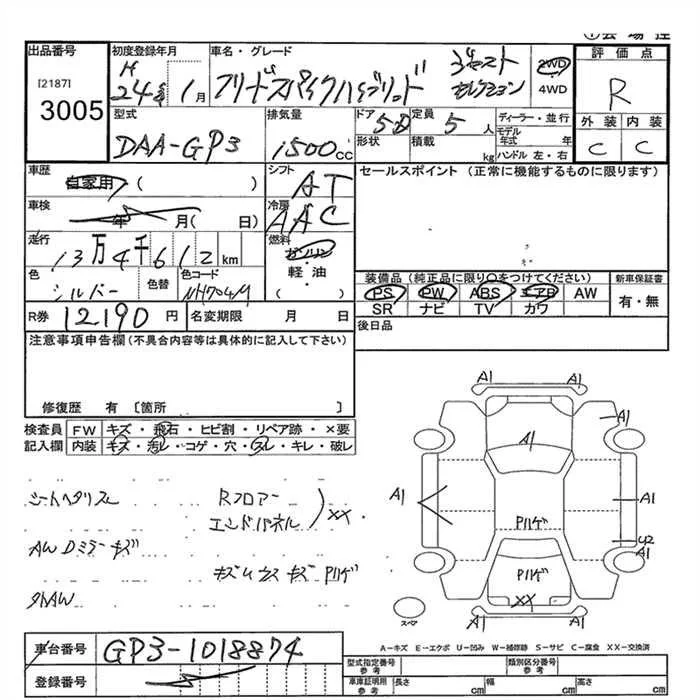 出品番号
[2187]
3005
初度登録年月
H
24年 1月
車名・グレード
フリードスパイクハイブリッド ジャスト
セレクション
2WD
4WD
評価点
R
外装 内装
C C
型式
DAA-GP3
排気量
1500cc
ドア 5D
形状
定員 5人
積載 kg
ディーラー・並行
モデル
年式 年
ハンドル 左・右
車歴
自家用 ( )
シフト
AT
セールスポイント(正常に機能するものに限ります)
車検
年 月( 日)
冷房
AAC
走行
13万4千612km
燃料
ガソリン
軽・油
( )
色
シルバー
色替
色コード
NH704M
装備品(純正品に限り○をつけてください)
新車保証書
PS PW ABS エアB AW
SR ナビ TV カワ
有・無
R券 12190円
名変期限 月 日
後日品
注意事項申告欄(不具合内容等は具体的に記入して下さい)
修復歴 有 〔箇所 〕
検査員
記入欄
FW キズ・飛石・ヒビ割・リペア跡・×要
内装 キズ・汚レ・コゲ・穴・スレ・キレ・破レ
シートヘタリスレ
Rフロアー
エンドパネル
XX
AW Dミラーキズ
外AW
A1 A1
A1
A1
A1
A1
Pハゲ
U2
A1
Pハゲ
XX
スペア
A1 A1
A-キズ E-エクボ U-凹み W-補修跡 S-サビ C-腐食 XX-交換済
車台番号
GP3-1018874
登録番号
型式指定番号
参考
類別区分番号
参考
車庫証明用
参考
長さ cm
幅 cm
高さ cm